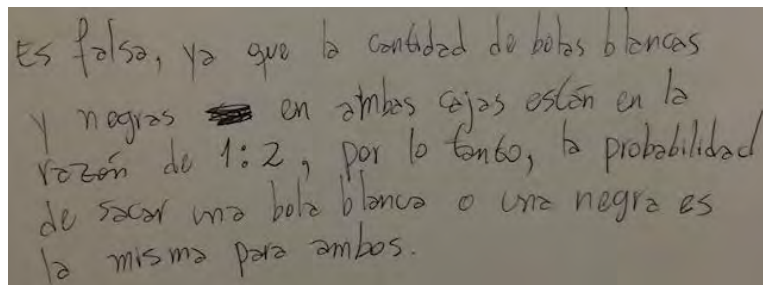 Es falsa, ya que la cantidad de bolas blancas
y negras en ambas cajas están en la
razón de 1:2, por lo tanto, la probabilidad
de sacar una bola blanca o una negra es
la misma para ambos.